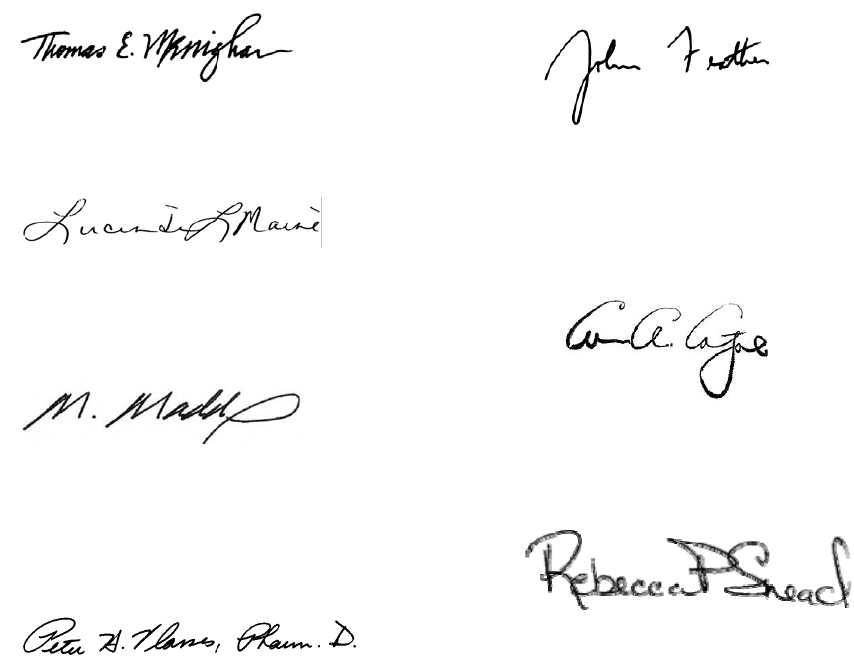 Thomas E. Menighan
John Feather
Lucinda L Maine
M. Madd
Rebecca P Snead
Peter H. Vlasses, Pharm. D.